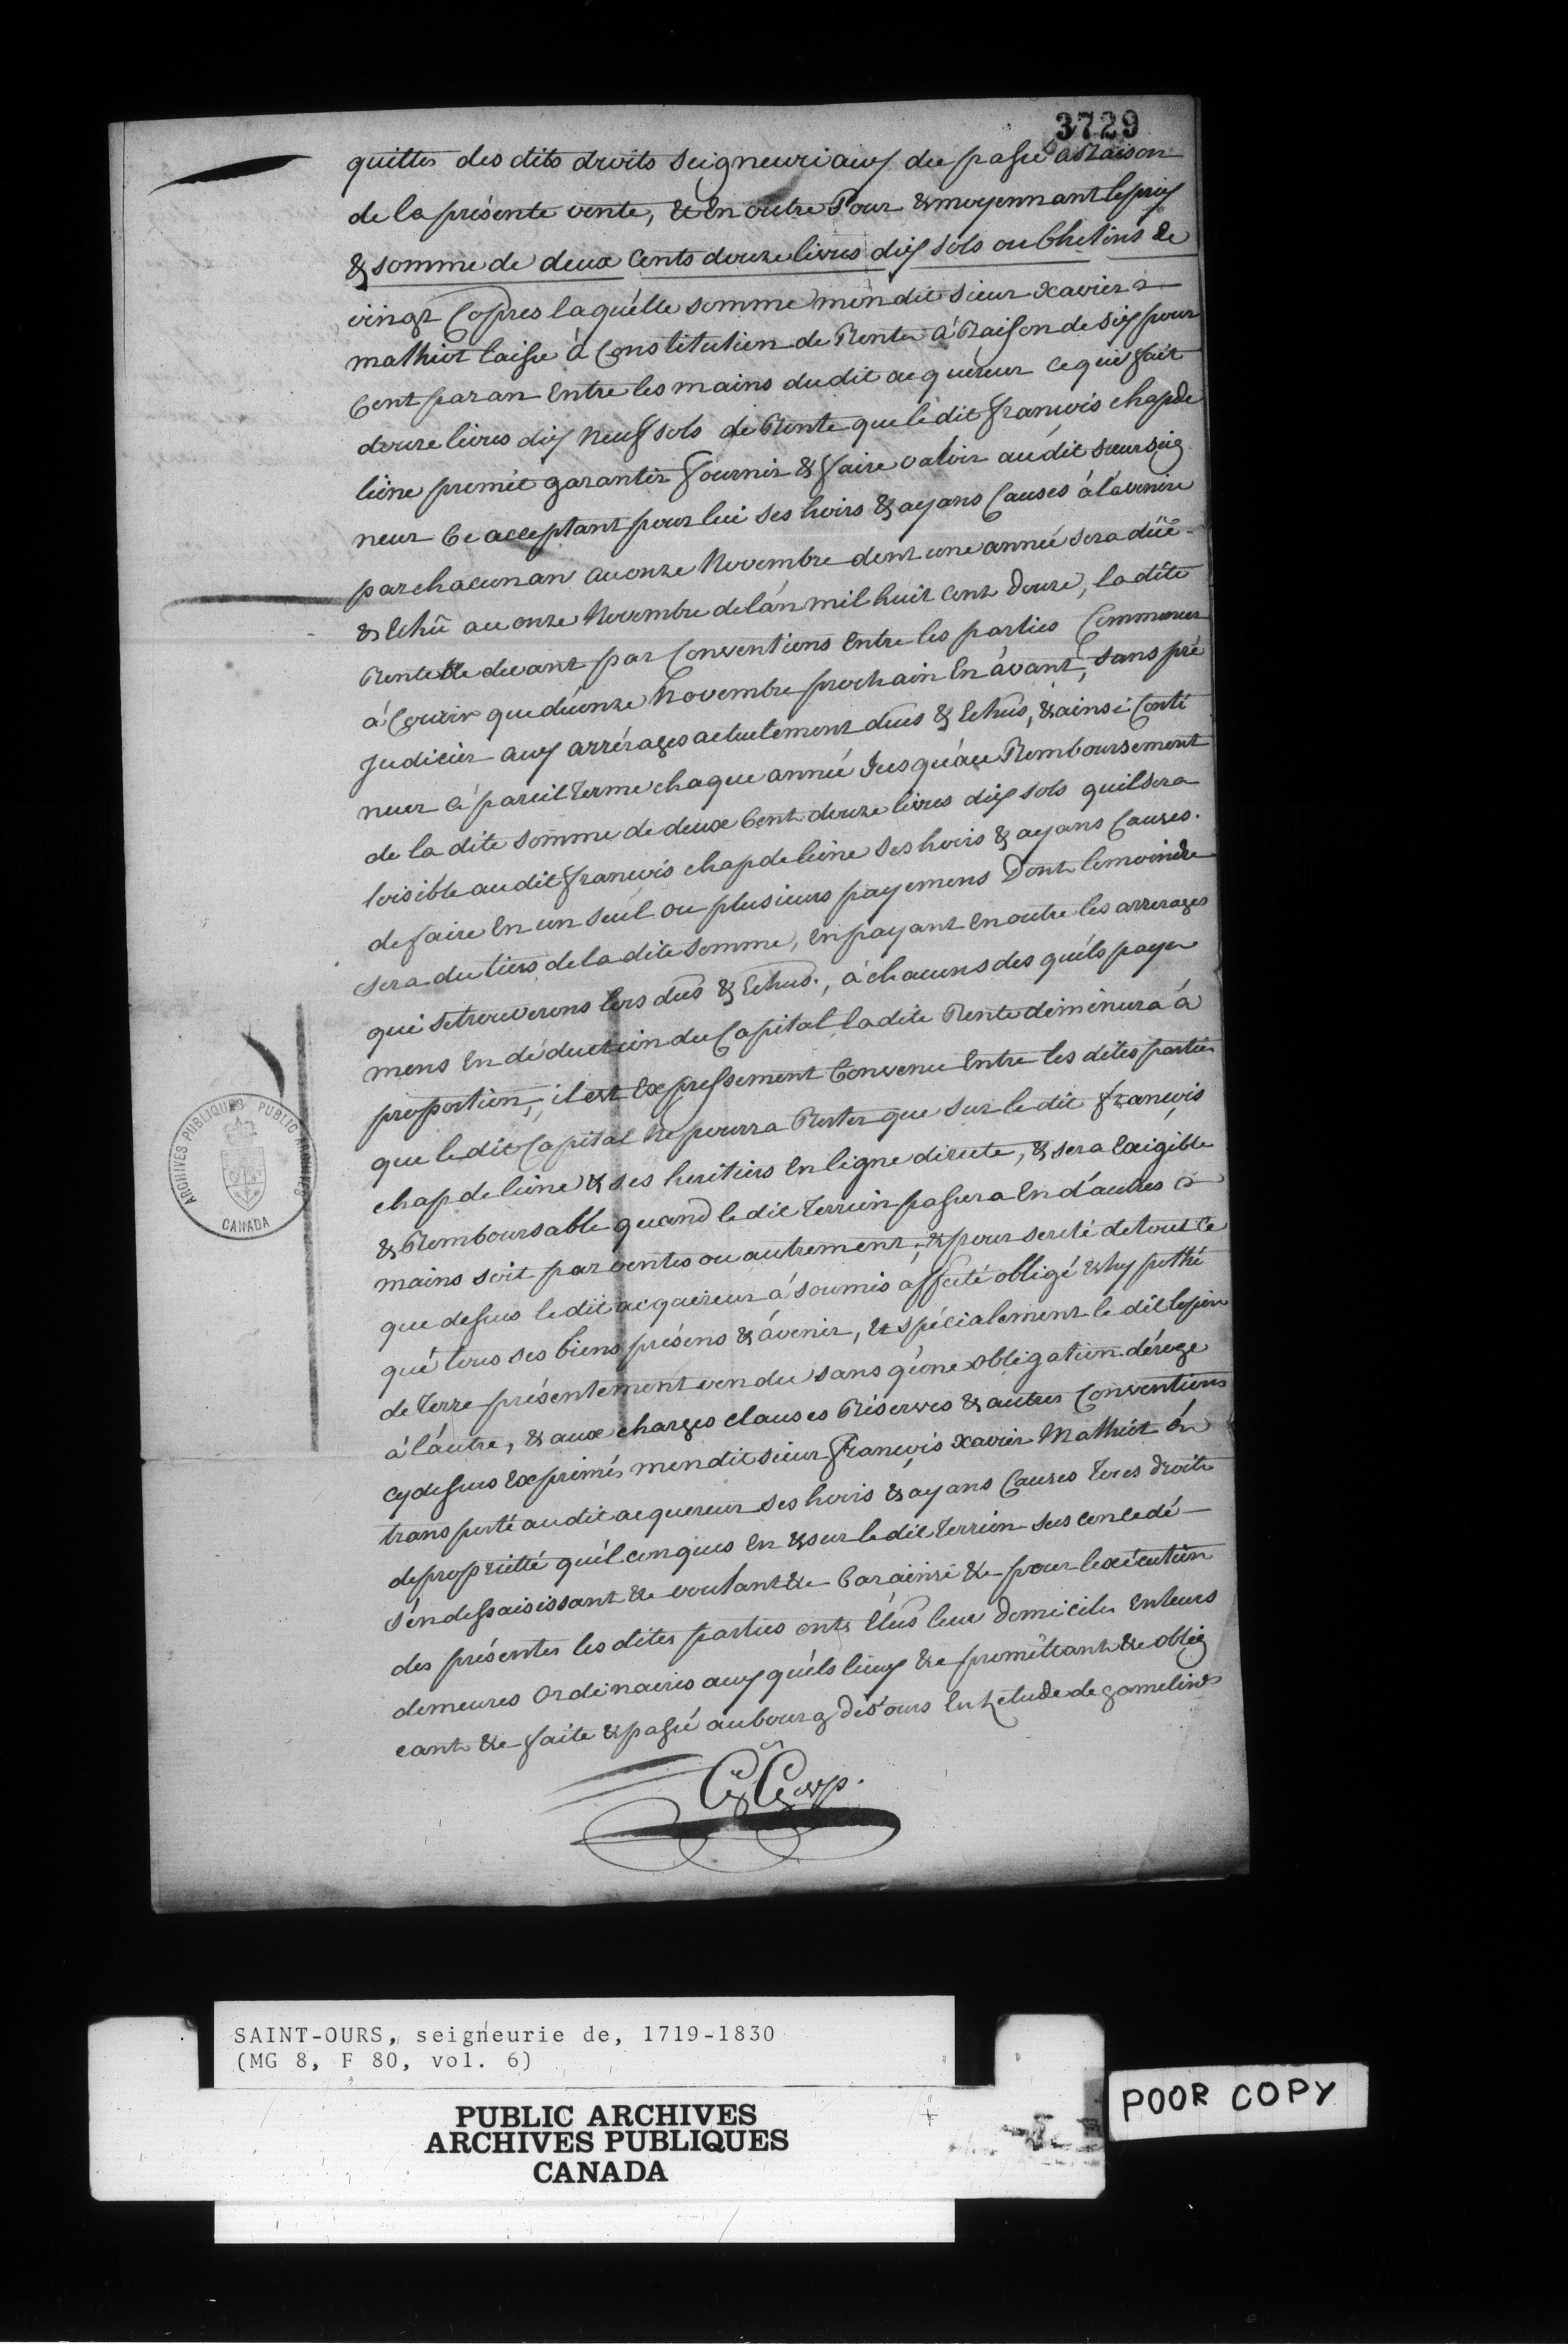 3729
quittes des dits droits seigneuriaux du passé à Raison
de la présente vente, & En outre Pour & moyennant le prix
& somme de deux Cents douze livres dix sols ou Chelins de
vingt Copres laquélle somme mon dit sieur xavier
mathiot laisse à Constitution de Rente à Raison de six pour
Cent par an Entre les mains du dit acquéreur ce qui fait
douze livres dix Neuf sols de Rente que le dit françois chapde
leine promèt garantir fournir & faire valoir au dit sieur seig
neur Ce acceptant pour lui ses hoirs & ayans Causes à l'avenir
par chacun an au onze Novembre dont une année sera düe
& Echû au onze Novembre de l'an mil huit cent Douze, la dite
Rente Ne devant par Conventions Entre les parties Commencer
à Courir que du onze Novembre prochain En àvant, sans pré
judicier aux arrérages actuelement dues & Echus, & ainsi Conti
nuer à pareil terme chaque année Jusqu'au Remboursement
de la dite somme de deux Cent douze livres dix sols quil sera
loisible au dit françois chapdeleine ses hoirs & ayans Causes.
de faire En un seul ou plusieurs payemens Dont le moindre
sera du tiers de la dite somme, en payant en outre les arrerages
qui se trouverons lors dus & Echus., à chacuns des quéls paye
mens En déduction du Capital la dite Rente diminura à
proportion, il est Expressement Convenu Entre les dites parties
que le dit Capital Ne pourra Rester que sur le dit françois
chapdeleine & ses heritiers En ligne directe, & sera Exigible
& Remboursable quand le dit terrein passera En d'autres
mains soit par ventes ou autrement, & pour sureté de tout ce
que dessus le dit acquereur a soumis affecté obligé & hypothé
qué tous ses biens présens & àvenir, & spécialement le dit lopin
de terre présentement vendu sans qu'une obligation déroge
à l'autre, & aux charges clauses Réserves & autres Conventions
cy dessus Exprimés mon dit sieur François xavier Mathiot én
transporté au dit acquereur ses hoirs & ayans Causes tous droits
de propriétté quélconques En & sur le dit terrein sus concedé
s'en dessaisissant &c voulant &c Car ainsi &c pour l'exécution
des présentes les dites parties onts Elus leur domiciles En leurs
demeures Ordinaires aux quéls lieux &c promettant &c oblig
eant &c faite & passé au bourg de St ours En L'etude de gamelin
ARCHIVES PUBLIQUES PUBLIC ARCHIVES
CANADA
SAINT-OURS, seigneurie de, 1719-1830
(MG 8, F 80, vol. 6)
PUBLIC ARCHIVES
ARCHIVES PUBLIQUES
CANADA
POOR COPY